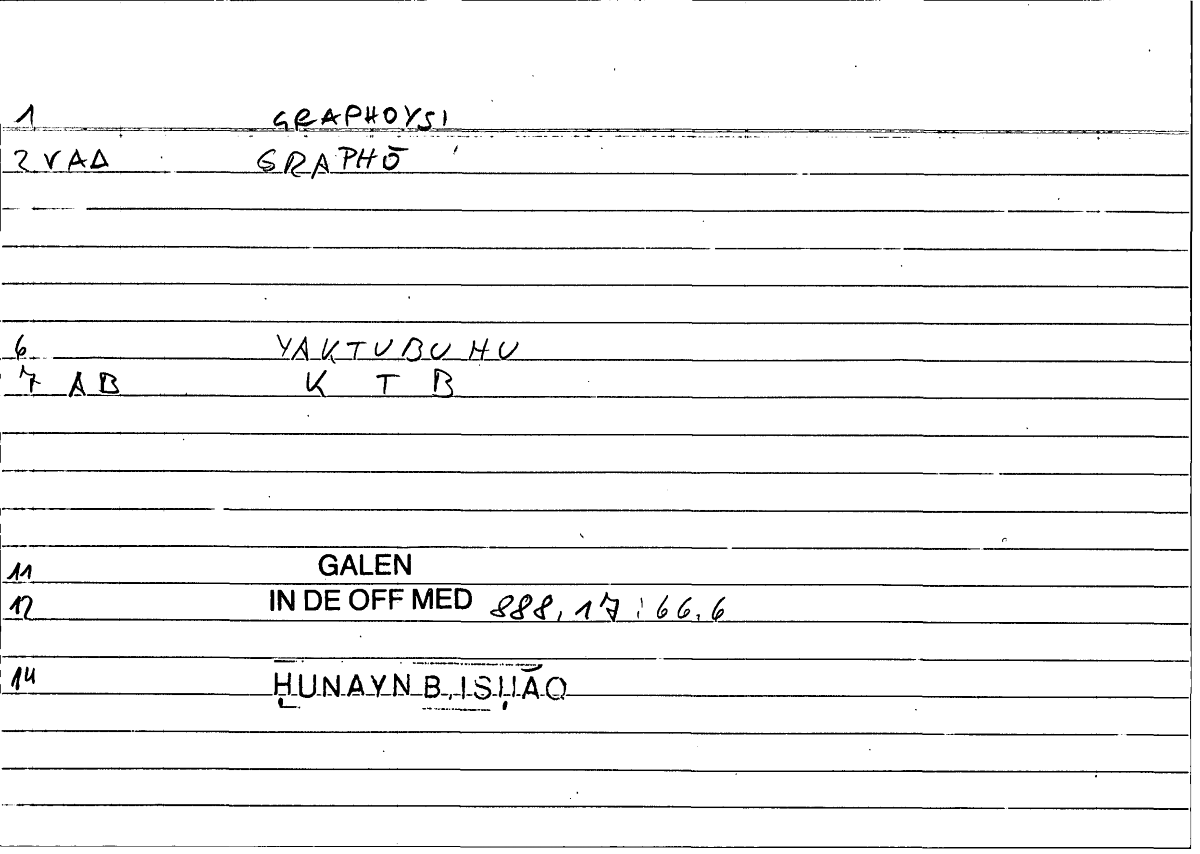 1 GRAPHOYSI
2 VAA GRAPHŌ
6 YAKTUBUHU
7 AB K T B
11 GALEN
12 IN DE OFF MED 888,17:66,6
14 ḤUNAYN B. ISḤĀQ